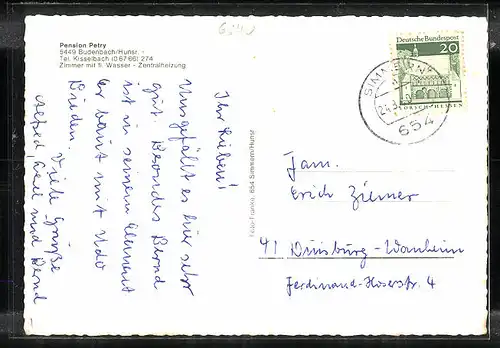 Pension Petry
5449 Budenbach/Hunsr. -
Tel. Kisselbach (0 67 66) 274
Zimmer mit fl. Wasser - Zentralheizung
Ihr Lieben!
Uns gefällt es hier sehr
gut. Besonders Bernd
ist in seinem Element
Er baut mit Udo
Buden. Viele Grüße
Alfred, und Bernd
Foto-Franke, 654 Simmern/Hunsr
Deutsche Bundespost
20
LORSCH-HESSEN
SIMMERN
654
Fam.
Erich Zilmer
41 Duisburg-Wanheim
Ferdinand-Höserstr. 4